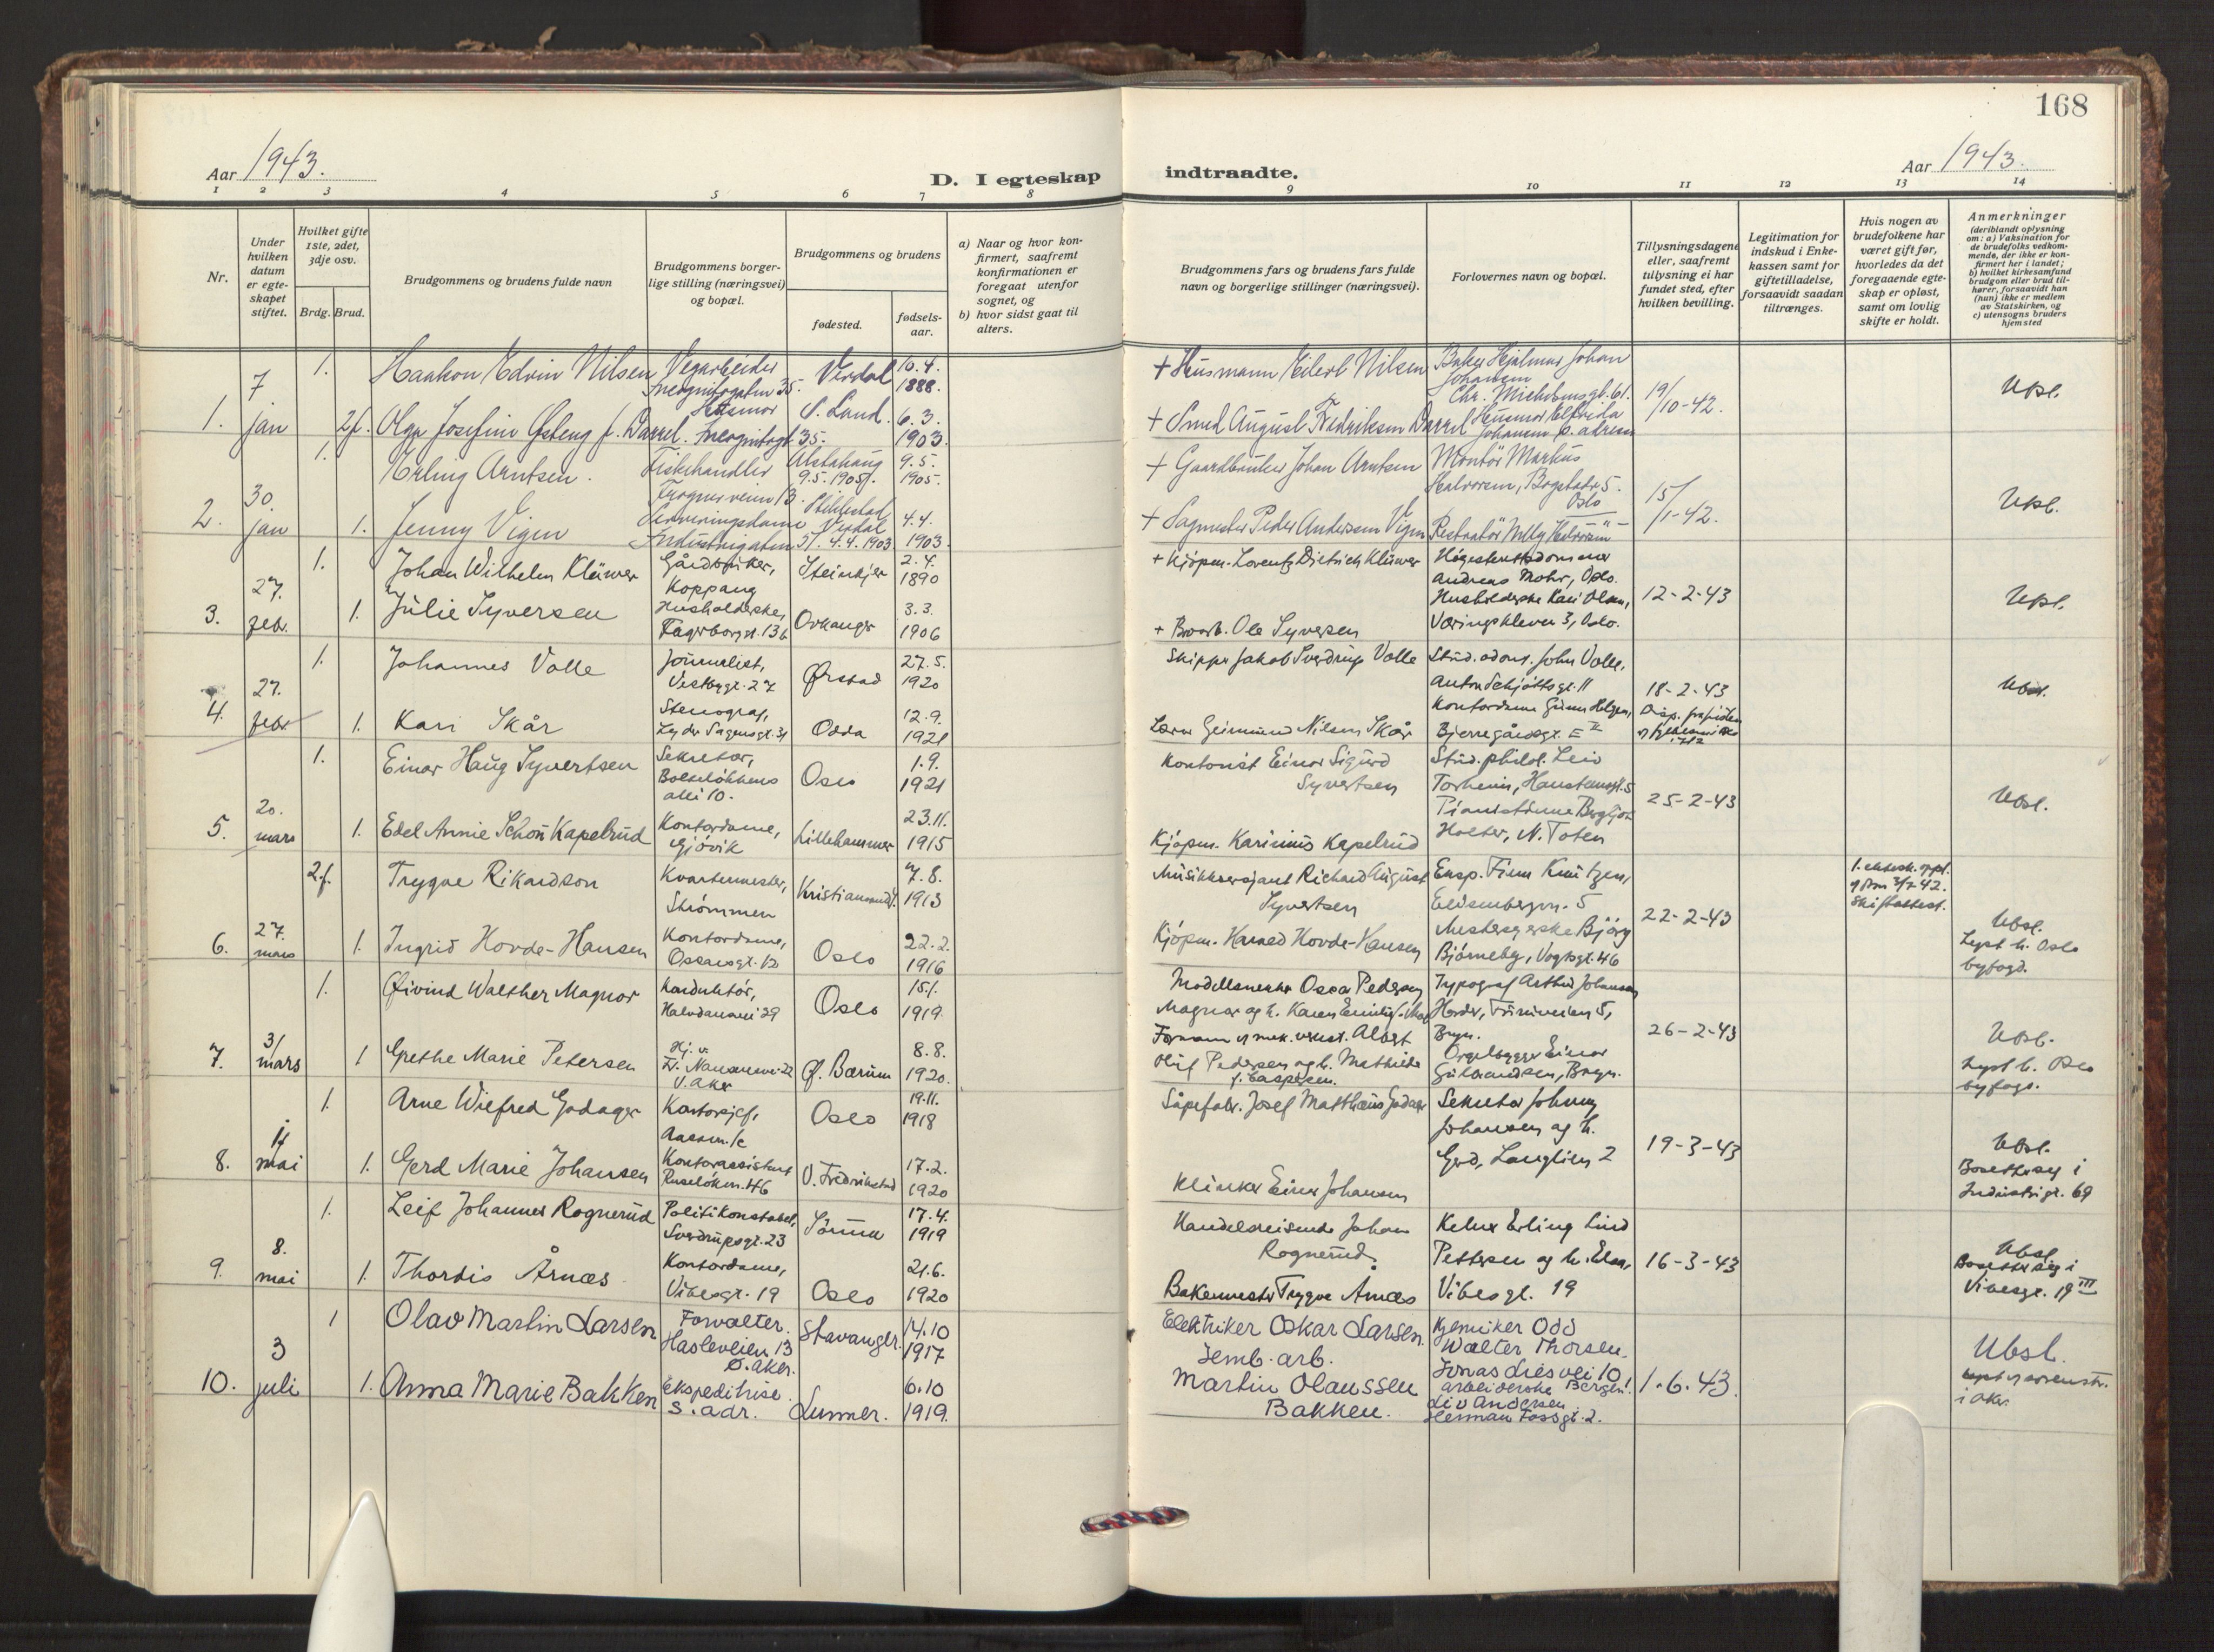 168
Aar 1943.
D. I egteskap indtraadte.
Aar 1943.
1 2 3 4 5 6 7 8 9 10 11 12 13 14
Nr.
Under hvilken datum er egte-skapet stiftet.
Hvilket gifte 1ste, 2det, 3dje osv.
Brdg. Brud.
Brudgommens og brudens fulde navn
Brudgommens borger-lige stilling (næringsvei) og bopæl.
Brudgommens og brudens
fødested.
fødsels-aar.
a) Naar og hvor kon-firmert, saafremt konfirmationen er foregaat utenfor sognet, og
b) hvor sidst gaat til alters.
Brudgommens fars og brudens fars fulde navn og borgerlige stillinger (næringsvei).
Forlovernes navn og bopæl.
Tillysningsdagene eller, saafremt tillysning ei har fundet sted, efter hvilken bevilling.
Legitimation for indskud i Enke-kassen samt for giftetilladelse, forsaavidt saadan tiltrænges.
Hvis nogen av brudefolkene har været gift før, hvorledes da det foregaaende egte-skap er opløst, samt om lovlig skifte er holdt.
Anmerkninger (deriblandt oplysning om: a) Vaksination for de brudefolks vedkom-mende, der ikke er kon-firmert her i landet; b) hvilket kirkesamfund brudgom eller brud til-hører, forsaavidt han (hun) ikke er medlem av Statskirken, og c) utensogns bruders hjemsted
1. 7 jan
1. Haakon Edvin Nilsen Vegarbeider 35. Verdal 10.4. 1888.
2f. Olga Josefine Østeng f. Darrel. Husmor 35. S. Land. 6.3. 1903.
+ Husmann Eilert Nilsen
+ Smed August Fredriksen Darrel
Baker Hjalmar Johan Johansen Chr. Michelsensgt. 61.
Husmor Elfrida Johansen s. adresse
19/10-42.
Ubl.
2. 30. jan
1. Erling Arntsen. Fiskehandler Frognerveien 13. Alstahaug 9.5.1905. 9.5. 1905.
1. Jenny Vigen Serveringsdame Industrigaten 51. Stiklestad Verdal 4.4.1903 4.4. 1903.
+ Gaardbruker Johan Arntsen
+ Sagmester Peder Andersen Vigen
Montör Markus Halvorsen, Bogstadv 5. Oslo
15/1-42.
Ubl.
3. 27. feb.
1. Johan Wilhelm Klüwer Gårdbruker, Koppang Steinkjer 2.4. 1890
1. Julie Syversen Husholderske, Fagerborggt. 13 b Orkanger 3.3. 1906
+ Kjöpm. Lorentz Dietrich Klüwer
+ Ole Syversen
Högesterettsdommer Andreas Mohr, Oslo.
Husholderske Kari Olsen, Væringskleven 3, Oslo.
12-2-43
Ubl.
4. 27. feb.
1. Johannes Valle Journalist, Vestbygt. 27 Ørstad 27.5. 1920
1. Kari Skår Stenograf, Lyder Sagensgt. 31 Odda 12.9. 1921
Skipper Jakob Sverdrup Valle
Lærer Geirmund Nilsen Skår
Stud. odont. John Valle, Anton Schjöttsgt. 11
Kontordame Gunn Helgen, Bjerregårdsgt.
18-2-43
Ubl.
5. 20. mars
1. Einar Haug Syvertsen Sekretær, Bolteløkkens alle 10. Oslo 1.9. 1921
1. Edel Annie Schou Kapelrud Kontordame, Gjövik Lillehammer 23.11. 1915
Kontorist Einar Sigurd Syvertsen
Kjöpm. Karinius Kapelrud
Stud. philol. Leiv Torheim, 5
Pianistinne Bergljot Holter, N. Toten
25-2-43
Ubl.
6. 27. mars
2.f. Trygve Rikardson Kvartermester, Strömmen Kristiansund 7.8. 1913
1. Ingrid Hovde-Hansen Kontordame, Oscarsgt. 12 Oslo 22.2. 1916
Musikksersjant Richard August Syvertsen
Kjöpm. Harald Hovde-Hansen
Eksp. Finn Knutzen, Eidsembergvn. 5
Björg Björneby, Vogtsgt. 46
22-2-43
1. ekteskap oppl. 42. Skifteattest.
Ubl. Lyst h. Oslo byfogd.
7. 31 mars
1. Øivind Walther Magnor Konduktör, Halvdansvei 29 Oslo 15.1. 1919.
1 Grethe Marie Petersen Hj. v. Fr. Nansensvei 22 V. Aker Ø. Bærum 8.8. 1920.
Modellsnekker Oscar Pedersen Magnor og h. Karen Emilie
Formann v mek. verkst. Albert Oluf Pedersen og h. Mathilde f. Caspersen.
Typograf Arthur Johansen Herder, Furuveien 5, Bryn.
Orgelbygger Einar Gulbrandsen, Bryn.
26-2-43
Ubl. Lyst h. Oslo byfogd.
8. 14 mai
1. Arne Wilfred Godager Kontorsjef, Aasen. /c Oslo 19.11. 1918
1. Gerd Marie Johansen Kontorassistent Ruselökvn. 46 V. Fredrikstad 17.2. 1920
Såpefabr. Josef Matthæus Godager
Klinker Einar Johansen
Sekretær Johnny Johansen og h. Gerd, Langlien 2
19-3-43
Ubl. Bosetter seg i Industrigt. 69
9. 8. mai
1. Leif Johannes Rognerud Politikonstabel, Sverdrupsgt. 23 Sörum 17.4. 1919
1. Thordis Årnæs Kontordame, Vibesgt. 19 Oslo 21.6. 1920
Handelsreisende Johan Rognerud.
Bakermester Trygve Arnæs
Kelner Erling Lind Pettersen og h. Elsa, Vibesgt. 19
16-3-43
Ubl. Bosetter seg i Vibesgt. 19 III
10. 3 juli
1 Olav Martin Larsen Forvalter. Hasleveien 13 Ø. Aker. Stavanger. 14.10 1917
1. Anna Marie Bakken Ekspeditrise. s. adr. Lunner. 6.10 1919.
Elektriker Oskar Larsen.
Jernb. arb. Martin Olaussen Bakken.
Kjemiker Odd Walter Thorsen. Jonas Lies vei 10 Bergen!
arbeiderske Liv Andersen. Herman Fossgt. 2.
1.6.43.
Ubl. i Aker